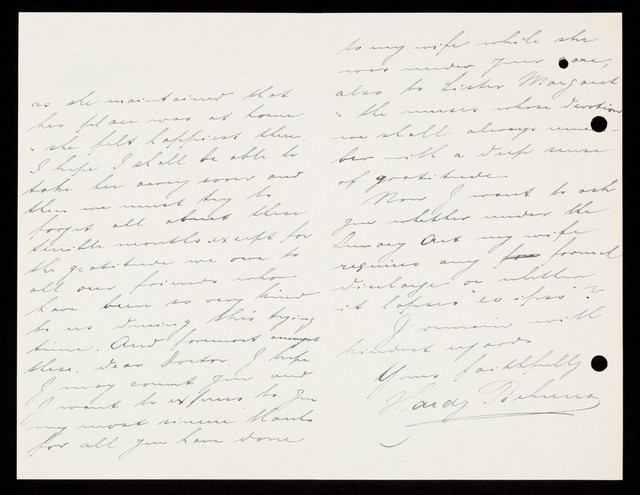 as she maintained that
her place was at home
& she felt happiest there.
I hope I shall be able to
take her away soon and
then we must try to
forget all about these
terrible months except for
the gratitude we owe to
all our friends who
have been so very kind
to us during this trying
time. And foremost amongst
these, dear Doctor, I hope
I may count you and
I want to express to you
my most sincere thanks
for all you have done
to my wife while she
was under your care,
also to Sister Margaret
& the nurses whose devotion
we shall always remem-
ber with a deep sense
of gratitude.
Now I want to ask
you whether under the
Lunacy Act my wife
requires any formal
discharge or whether
it lapses "eo ipso"?
I remain with
kindest regards
Yours faithfully
Behrens